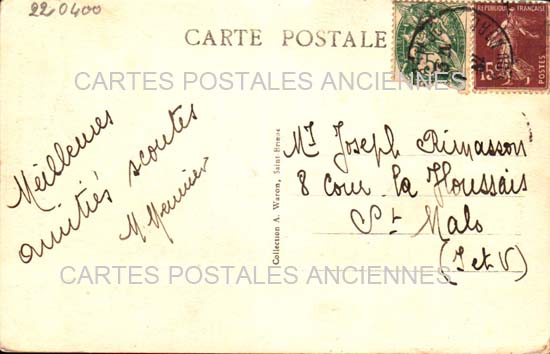 22 0400
CARTE POSTALE
REPUBLIQUE FRANÇAISE
15
POSTES
CARTES POSTALES ANCIENNES
Meilleures
amitiés scoutes
M Meunier
Collection A. Waron, Saint-Brieuc
Mr Joseph Rimasson
8 cour la Houssais
St Malo
(I et V)
CARTES POSTALES ANCIENNES